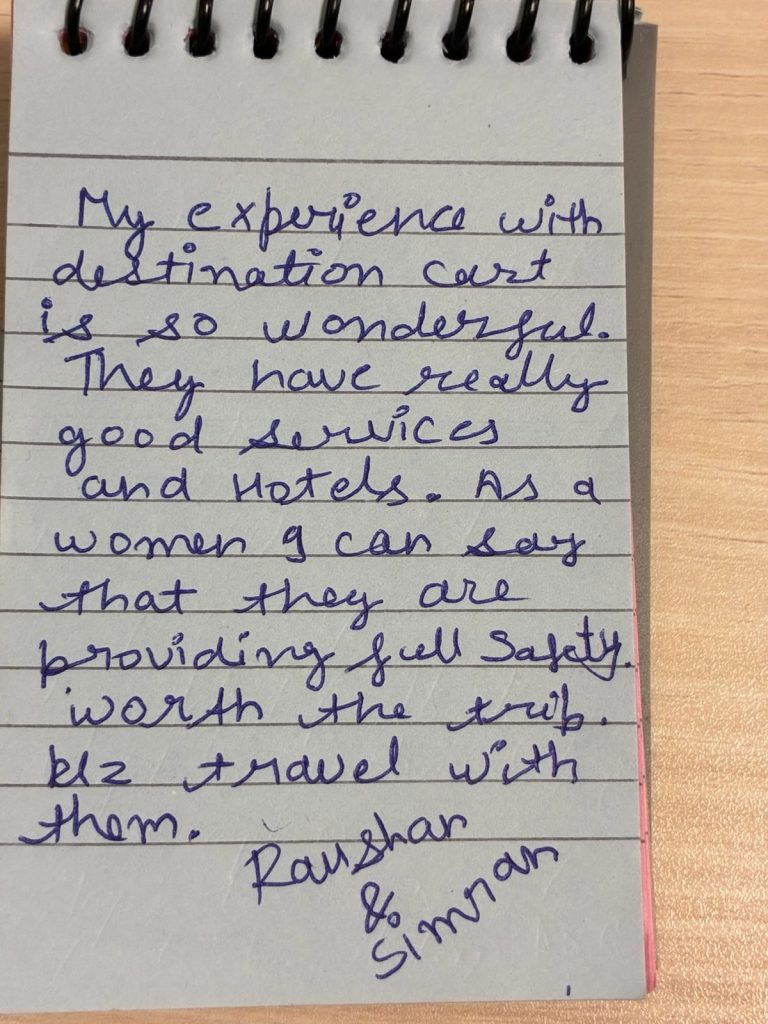 My experience with
destination cart
is so wonderful.
They have really
good services
and Hotels. As a
women I can say
that they are
providing full Safety.
worth the trip.
plz travel with
them.
Raushan
&
Simran